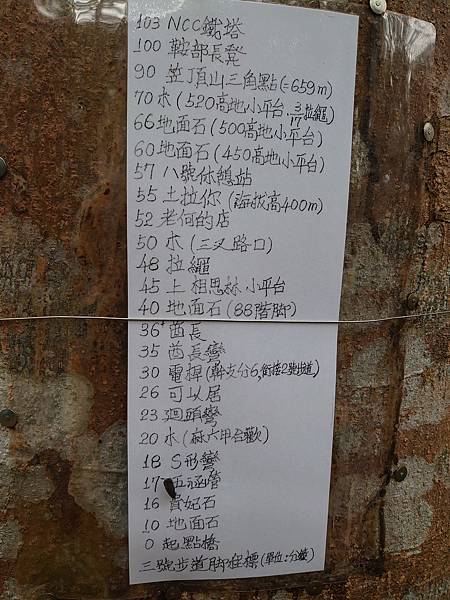 103 NCC鐵塔
100 鞍部長凳
90 笠頂山三角點(=659m)
70 木(520高地小平台.3/17拉繩)
66 地面石(500高地小平台)
60 地面石(450高地小平台)
57 八號休憩站
55 土拉你(海拔高400m)
52 老何的店
50 木(三叉路口)
48 拉繩
45 上相思林小平台
40 地面石(88階脚)
36 酋長
35 酋長彎
30 電桿(幹支分6,銜接2號步道)
26 可以居
23 迴頭彎
20 木(麻六甲合歡)
18 S形彎
17 涵管
16 貴妃石
10 地面石
0 起點橋
三號步道脚程標(單位:分鐘)